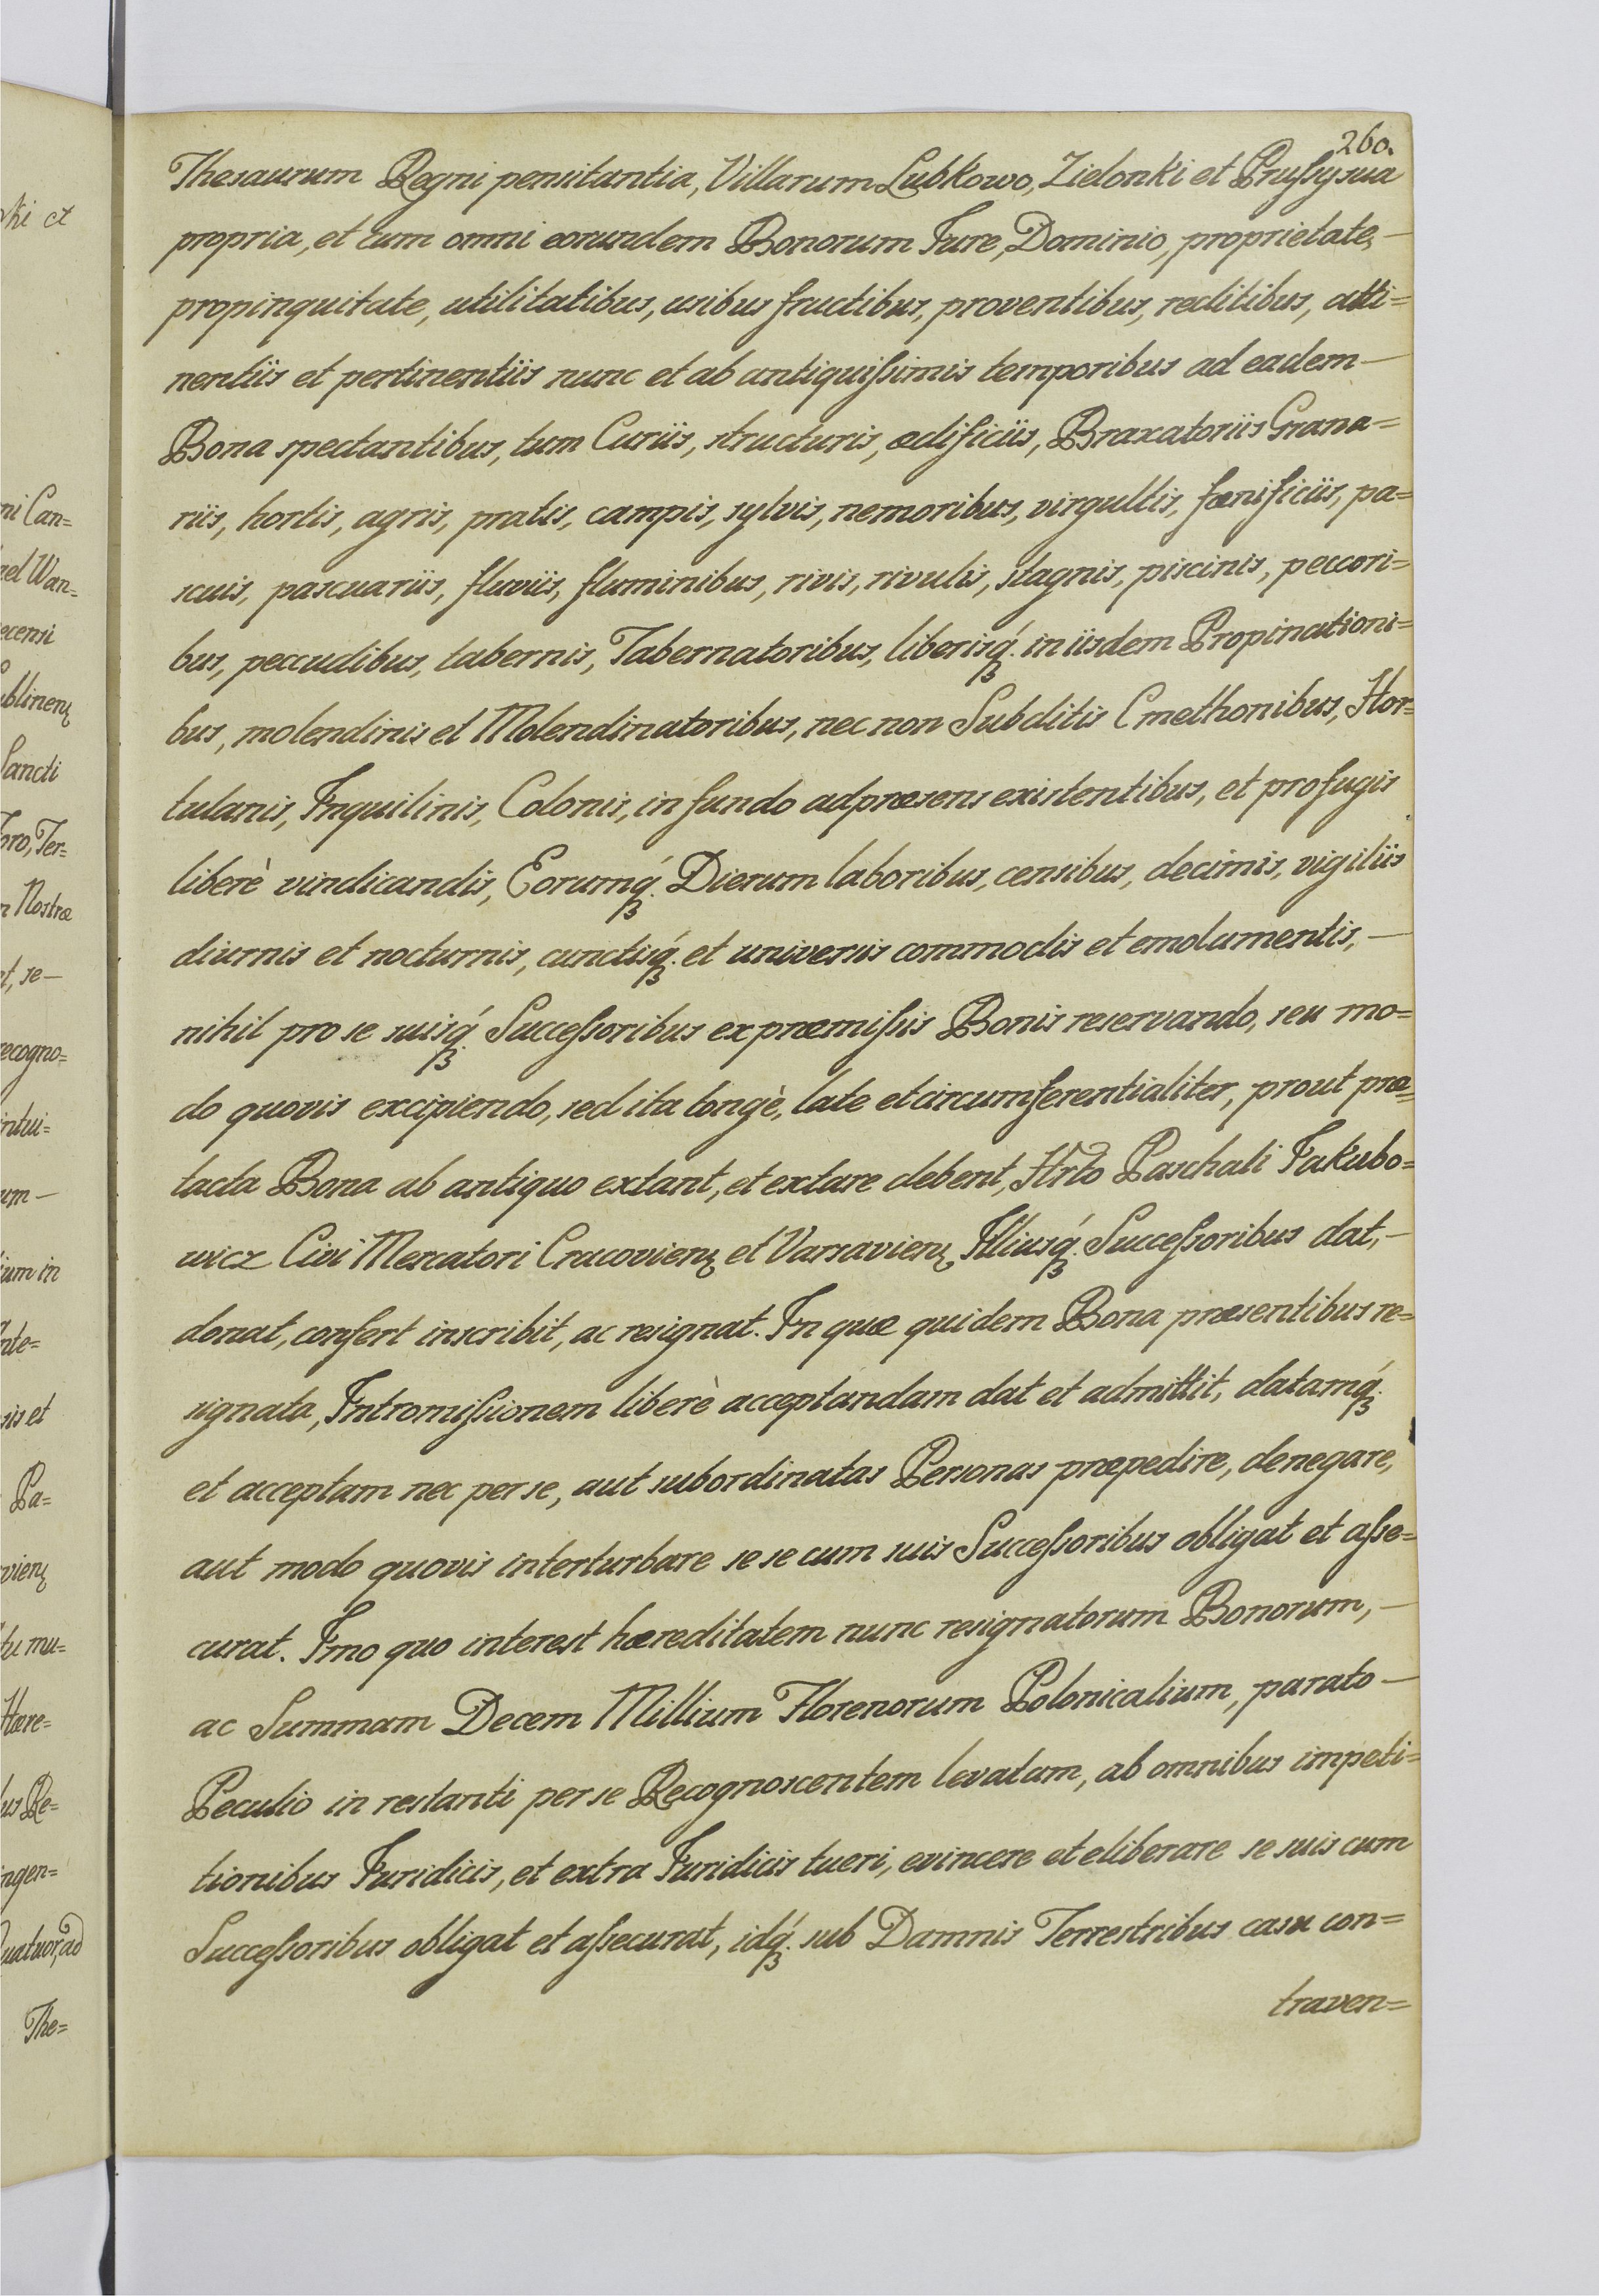 260.
Thesaurum Regni pensitantia, Villarum Lubkowo, Zielonki et Prußy sua
propria, et cum omni eorundem Bonorum Jure, Dominio, proprietate, —
propinquitate, utilitatibus, usibus fructibus, proventibus, reditibus, atti=
nentiis et pertinentiis nunc et ab antiquißimis temporibus ad eadem —
Bona spectantibus, tum Curiis, structuris, ædificiis, Braxatoriis Grana=
riis, hortis, agris, pratis, campis, sylvis, nemoribus, virgultis, fœnificiis, pa=
scuis, pascuariis, fluviis, fluminibus, rivis, rivulis, stagnis, piscinis, peccori=
bus, peccudibus, tabernis, Tabernatoribus, liberisq́ꝫ. in iisdem Propinationi=
bus, molendinis et Molendinatoribus, nec non Subditis Cmethonibus, Hor=
tulanis, Inquilinis, Colonis, in fundo ad præsens existentibus, et profugis
liberè vindicandis, Eorumq́ꝫ. Dierum laboribus, censibus, decimis, vigiliis
diurnis et nocturnis, cunctisq́ꝫ. et universis commodis et emolumentis, —
nihil pro se suisq́ꝫ. Succeßoribus ex præmißis Bonis reservando, seu mo=
do quovis excipiendo, sed ita longè, late et circumferentialiter, prout præ=
tacta Bona ab antiquo extant, et extare debent, Hrto Paschali Jakubo=
wicz Civi Mercatori Cracovienꝫ et Varsavienꝫ Illiusq́ꝫ. Succeßoribus dat, —
donat, confert inscribit, ac resignat. In quæ quidem Bona præsentibus re=
signata, Intromißionem liberè acceptandam dat et admittit, datamq́ꝫ.
et acceptam nec per se, aut subordinatas Personas præpedire, denegare,
aut modo quovis interturbare se se cum suis Succeßoribus obligat et aße=
curat. Imo quo interest hæreditatem nunc resignatorum Bonorum, —
ac Summam Decem Millium Florenorum Polonicalium, parato —
Peculio in restanti per se Recognoscentem levatam, ab omnibus impeti=
tionibus Juridicis, et extra Juridicis tueri, evincere et eliberare se suis cum
Succeßoribus obligat et aßecurat, idq́ꝫ. sub Damnis Terrestribus casu con=
traven=